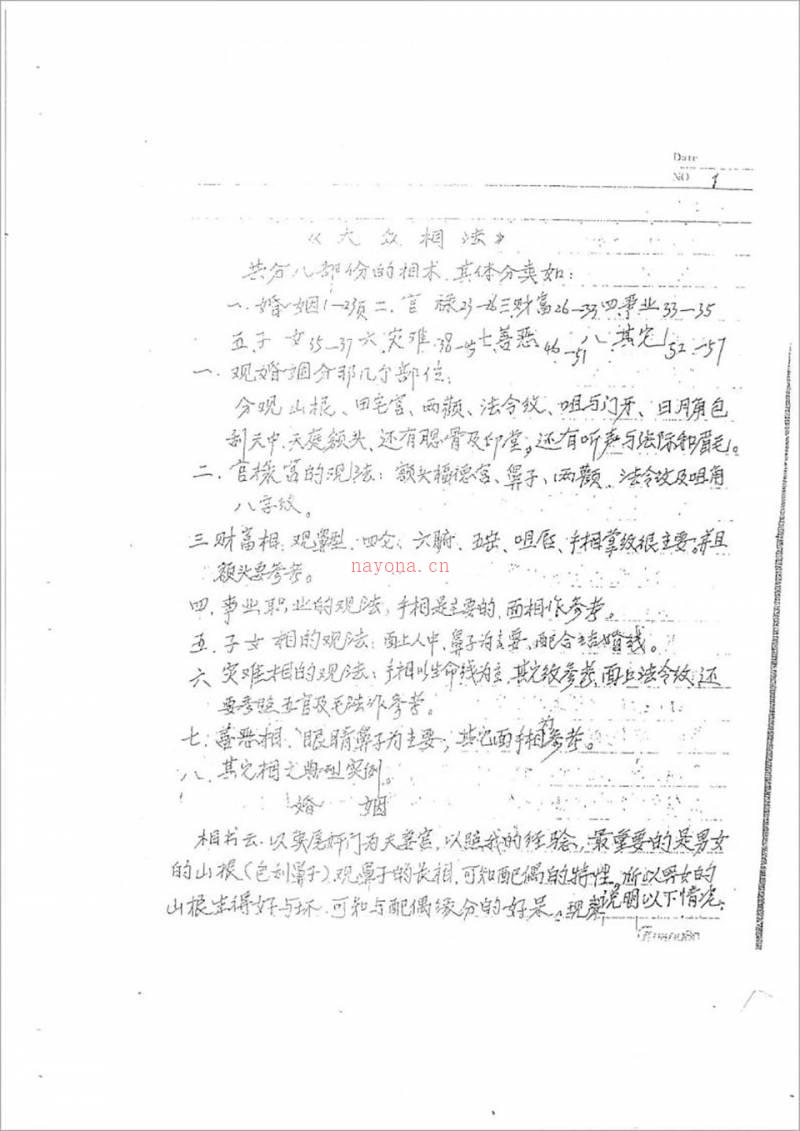 Date
NO 1
《大众相法》
共分八部份的相术.具体分类如:
一.婚姻1—23页二.官禄23—26三财富26—33四事业33—35
五子女35—37六灾难38—45七善恶46—51八其它52—57
一.观婚姻分那几个部位:
分观山根、田宅宫、两颧、法令纹、咀与门牙、日月角包
刮天中、天庭额头、还有腮骨及印堂。还有听声与法际和眉毛。
二.官禄宫的观法:额头福德宫、鼻子、两颧.法令纹及咀角
八字纹。
三财富相:观鼻型.四仑、六腑、五岳、咀唇、手相掌纹很主要.并且
额头要参考。
四.事业职业的观法,手相是主要的.面相作参考。
五.子女相的观法:面上人中.鼻子为主要、配合结婚线。
六灾难相的观法:手相以生命线为主.其它纹参考.面上法令纹.还
要参照五官及毛法作参考。
七.善恶相、眼睛鼻子为主要,其它面手相为参考。
八.其它相之典型实例。
婚姻
相书云.以鱼尾奸门为夫妻宫,以照我的经验,最重要的是男女
的山根(包刮鼻子).观鼻子的长相.可知配偶的特性。所以男女的
山根生得好与坏.可知与配偶缘分的好呆。现就说明以下情况:
nayona.cn